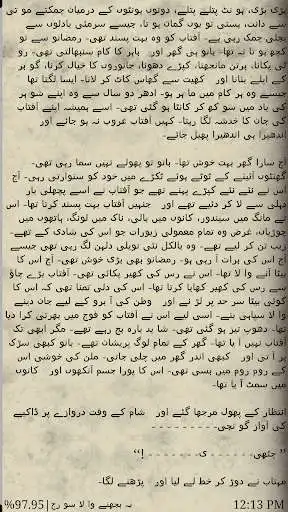 بڑی بڑی، ہونٹ پتلے پتلے، دونوں ہونٹوں کے درمیان چمکتے موتی
سے دانت، ہستی تو یوں گماں ہوتا، جیسے سرمئی بادلوں سے
بجلی چمک رہی ہے۔ آفتاب کو وہ بہت پسند تھی۔ رمضانو سے تو
کچھ ہوتا نہ تھا۔ بانو ہی گھر اور باہر کا کام سنبھالتی تھی۔ رو
ٹی پکانا، برتن مانجھنا، کپڑے دھونا، جانوروں کا خیال کرنا، گوبر
کے اپلے بنانا اور کھیت سے گھاس کاٹ کر لانا۔ ایسا لگتا تھا
جیسے وہ ہر کام میں ماہر ہو۔ ادھر دو سال سے وہ اپنے شوہر
کی یاد میں سوکھ کر کانٹا ہو گئی تھی۔ اسے ہمیشہ اپنے آفتاب
کی جان کا خدشہ لگا رہتا۔ کہیں آفتاب غروب نہ ہو جائے اور
اندھیرا ہی اندھیرا پھیل جائے۔
آج سارا گھر بہت خوش تھا۔ بانو تو پھولے نہیں سما رہی تھی۔
گھنٹوں آئینے کے ٹوٹے ہوئے ٹکڑے میں خود کو سنوارتی رہی۔ آج
اس نے نئے نئے کپڑے پہنے تھے جو آفتاب نے اسے پچھلی بار
دہلی سے لا کر دئیے تھے اور جنہیں آفتاب بہت پسند کرتا تھا۔ اس
نے مانگ میں سیندور، کانوں میں بالی، ناک میں لونگ، ہاتھوں میں
چوڑیاں، غرض وہ تمام معمولی زیورات جو اس کی شادی کے تھے۔
زیب تن کر لیے تھے۔ وہ بالکل نئی نویلی دلہن لگ رہی تھی جیسے
آج اس کی برات آ رہی ہو۔ رمضانو بھی بڑی خوش تھی۔ آج اس کا
بیٹا آنے والا تھا۔ اس نے رس کی کھیر پکائی تھی۔ آفتاب بڑے چاؤ
سے رس کی کھیر کھایا کرتا تھا۔ اس کی دلی تمنا تھی کہ اس کا
کوئی بیٹا سرحد پر لڑنے اور وطن کی آبرو کے لیے جان دینے
والا سپاہی بنے۔ اسی لیے اس نے آفتاب کو فوج میں بھرتی کرا دیا
تھا۔ دھوپ تیز ہو گئی تھی۔ شاید بارہ بج رہے تھے۔ مگر ابھی تک
آفتاب نہیں آیا تھا۔ گھر کے تمام لوگ پریشان تھے۔ بانو کبھی سڑک
پر آتی اور کبھی اندر گھر میں چلی جاتی۔ ملن کی خوشی اس
کے روم روم میں بسی تھی۔ اس کا پورا جسم آنکھوں اور کانوں
میں سمٹ آیا تھا۔
انتظار کے پھول مرجھا گئے اور شام کے وقت دروازے پر ڈاکیے
کی آواز گونجی۔۔۔۔۔۔۔۔۔۔
”چٹھی۔۔۔۔۔ی۔۔۔۔۔۔!“
مہتاب نے دوڑ کر خط لے لیا اور پڑھنے لگا۔
%97.95 | نہ بجھنے والا سورج 12:13 PM